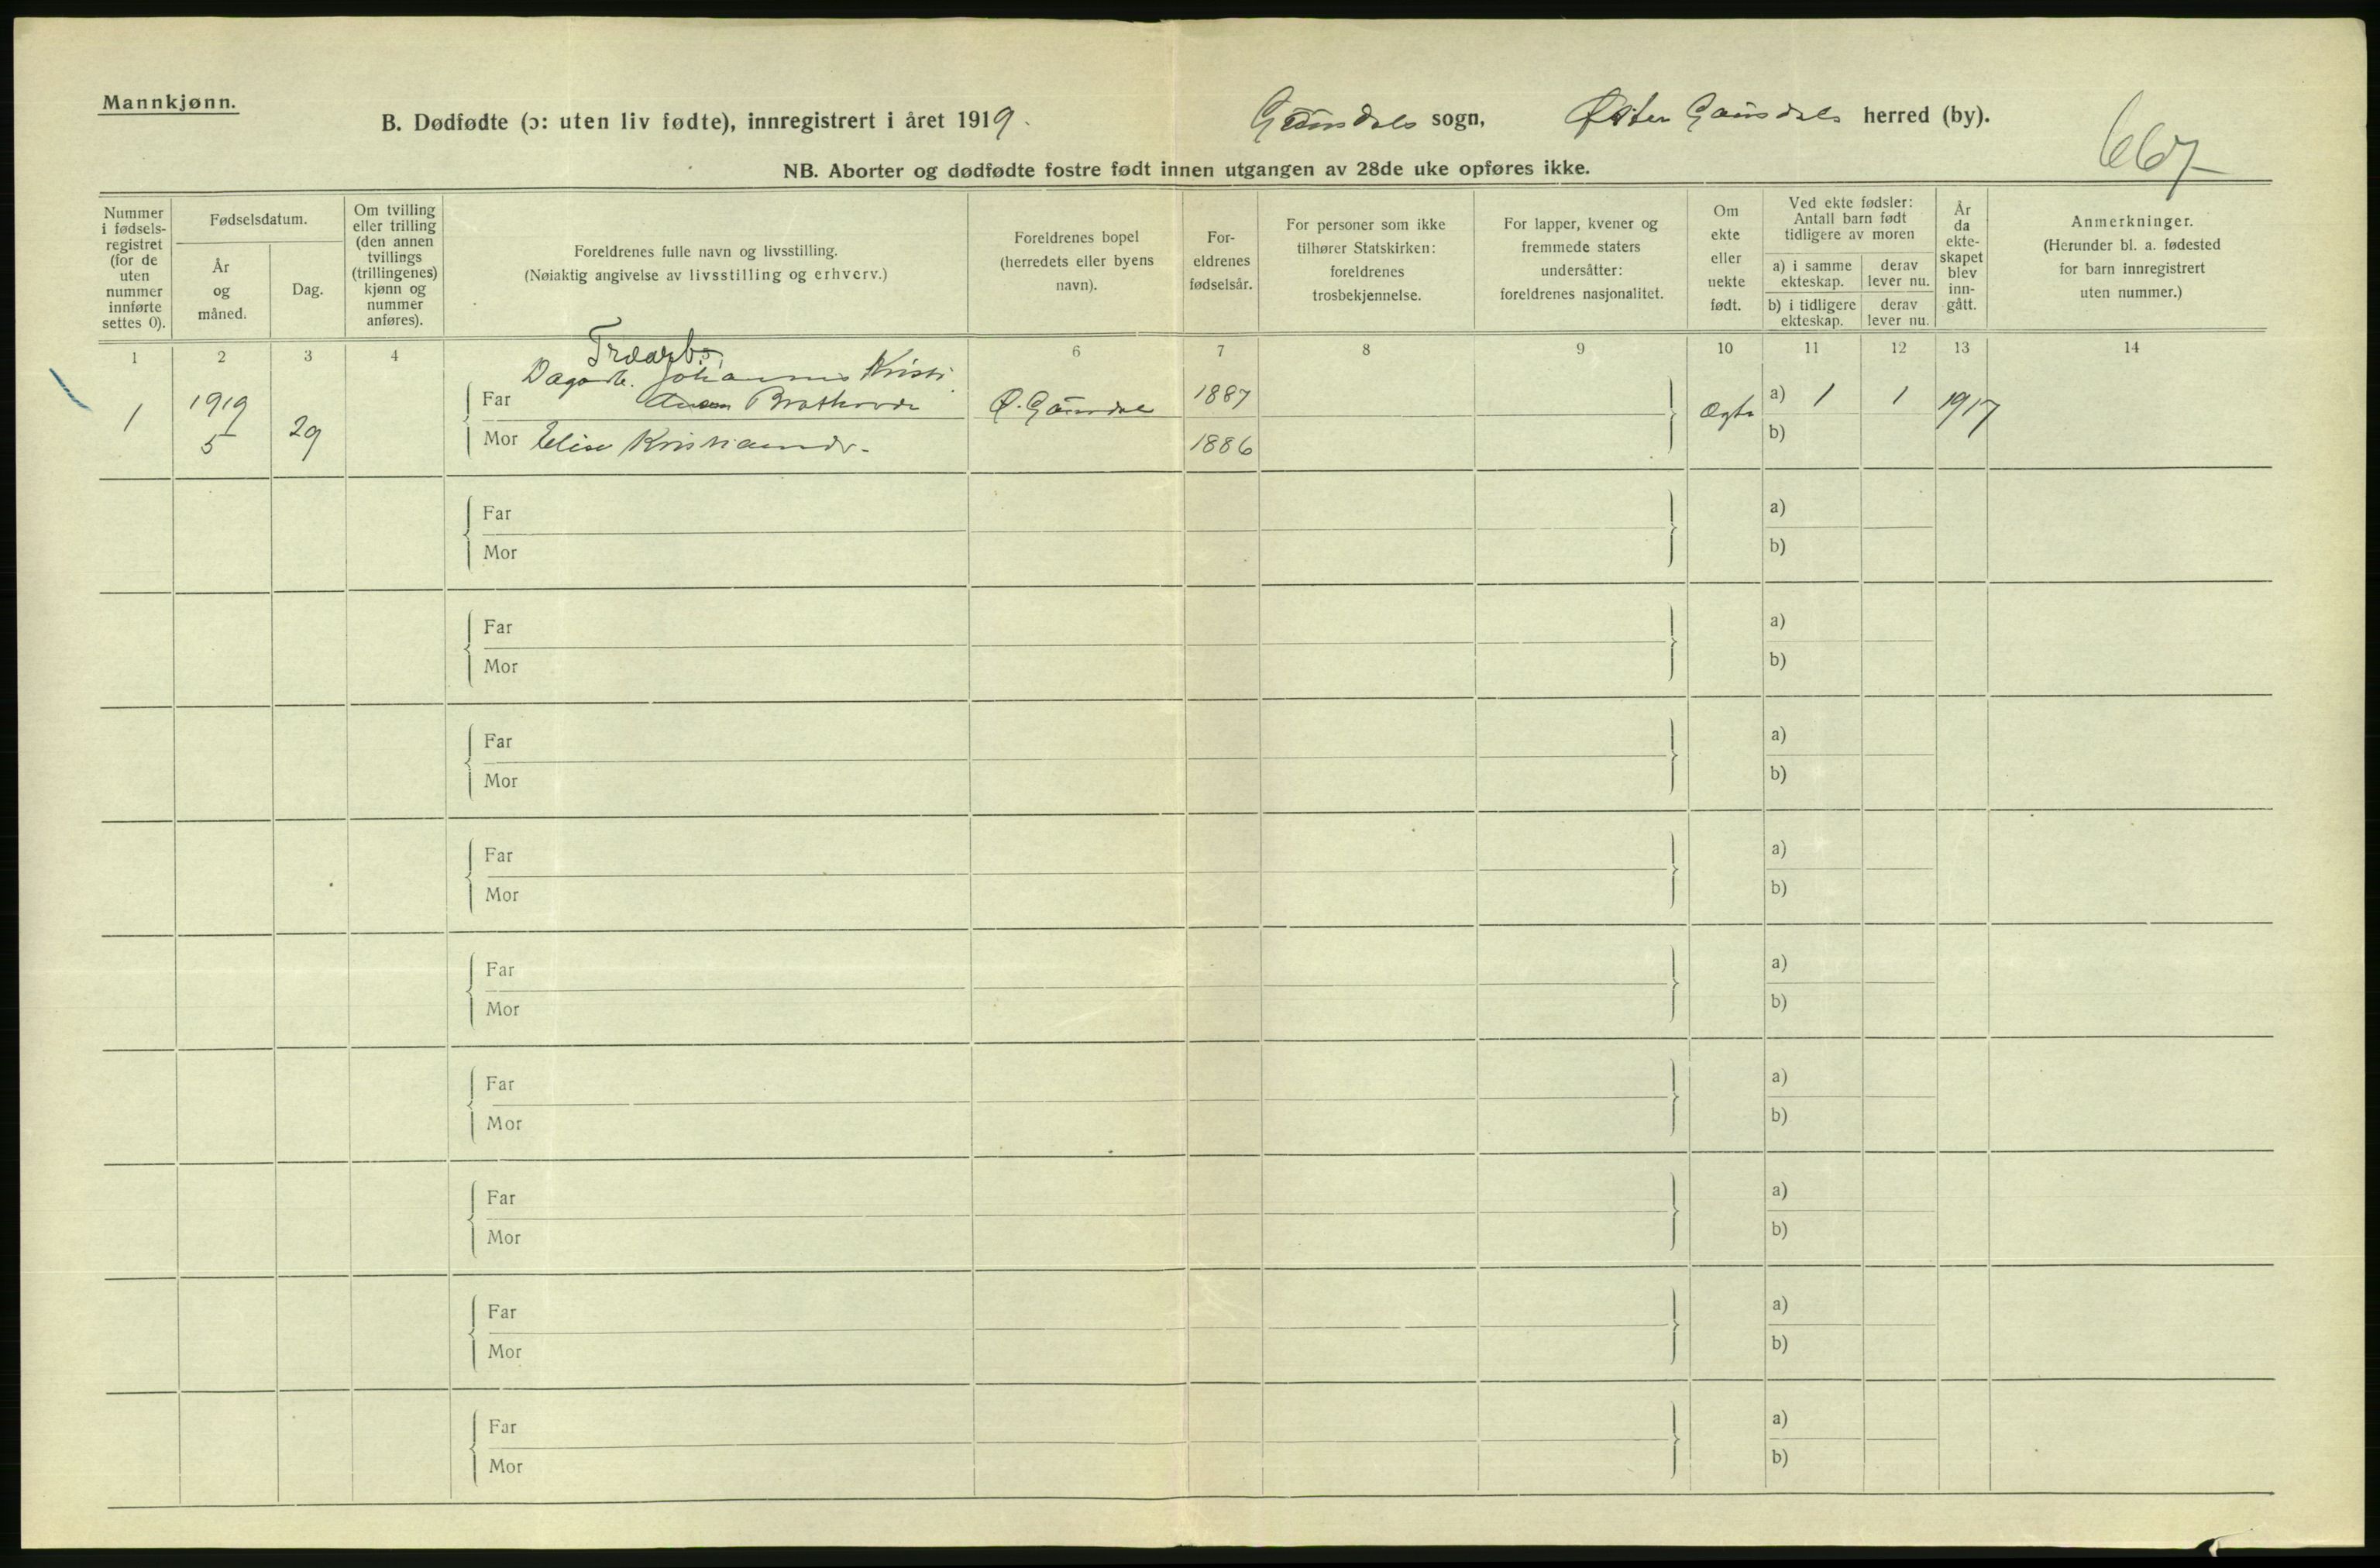 Mannkjønn.
B. Dødfødte (ɔ: uten liv fødte), innregistrert i året 1919. Gausdals sogn, Øster Gausdals herred (by).
667
NB. Aborter og dødfødte fostre født innen utgangen av 28de uke opføres ikke.
Nummer i fødsels-registret (for de uten nummer innførte settes 0).
Fødselsdatum.
År og måned.
Dag.
Om tvilling eller trilling (den annen tvillings (trillingenes) kjønn og nummer anføres).
Foreldrenes fulle navn og livsstilling.
(Nøiaktig angivelse av livsstilling og erhverv.)
Foreldrenes bopel (herredets eller byens navn).
For-eldrenes fødselsår.
For personer som ikke tilhører Statskirken: foreldrenes trosbekjennelse.
For lapper, kvener og fremmede staters undersåtter: foreldrenes nasjonalitet.
Om ekte eller uekte født.
Ved ekte fødsler: Antall barn født tidligere av moren
a) i samme ekteskap.
derav lever nu.
b) i tidligere ekteskap.
derav lever nu.
År da ekte-skapet blev inn-gått.
Anmerkninger.
(Herunder bl. a. fødested for barn innregistrert uten nummer.)
1 2 3 4 6 7 8 9 10 11 12 13 14
Dagarb. Johannes Kristi
1 1919 5 29 Far Brathovde Ø. Gausdal 1887 Ægte a) 1 1 1917
Mor Elise Kristiansdr. 1886 b)
Far a)
Mor b)
Far a)
Mor b)
Far a)
Mor b)
Far a)
Mor b)
Far a)
Mor b)
Far a)
Mor b)
Far a)
Mor b)
Far a)
Mor b)
Far a)
Mor b)